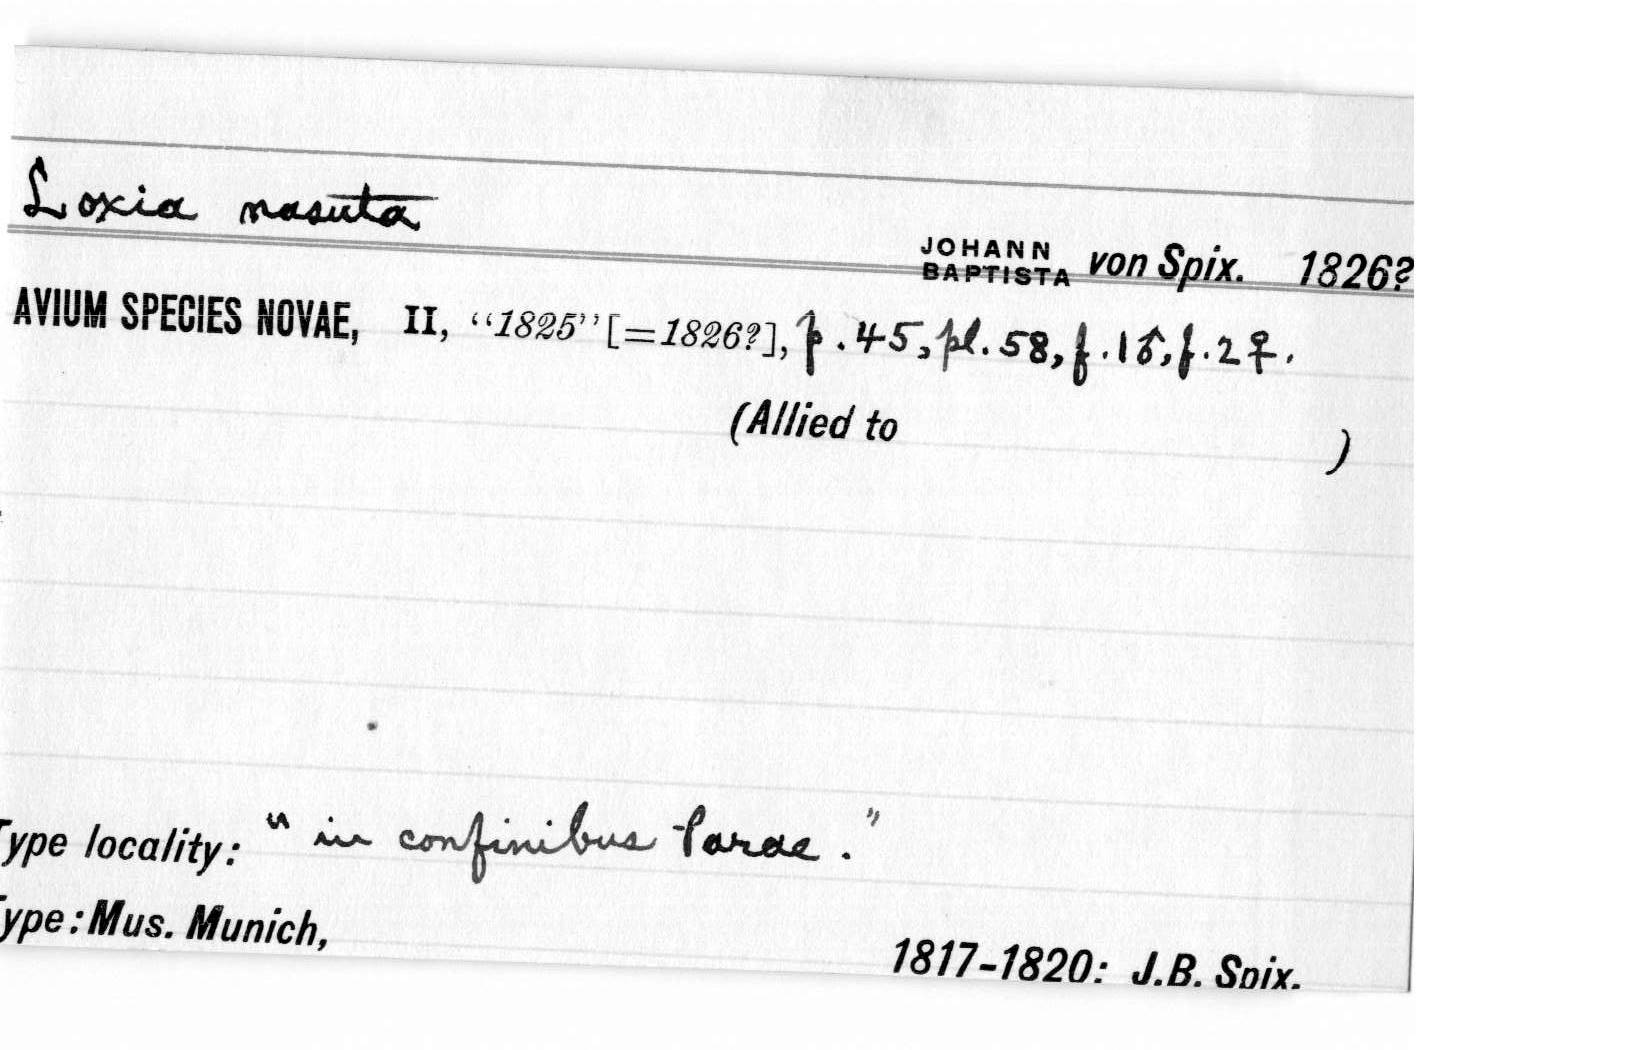 Loxia nasuta
JOHANN BAPTISTA von Spix. 1826?
AVIUM SPECIES NOVAE, II, "1825" [=1826?], p. 45, pl. 58, f. 1♂, f. 2♀.
(Allied to )
Type locality: "in confinibus Parae."
Type: Mus. Munich,
1817-1820: J.B. Spix.